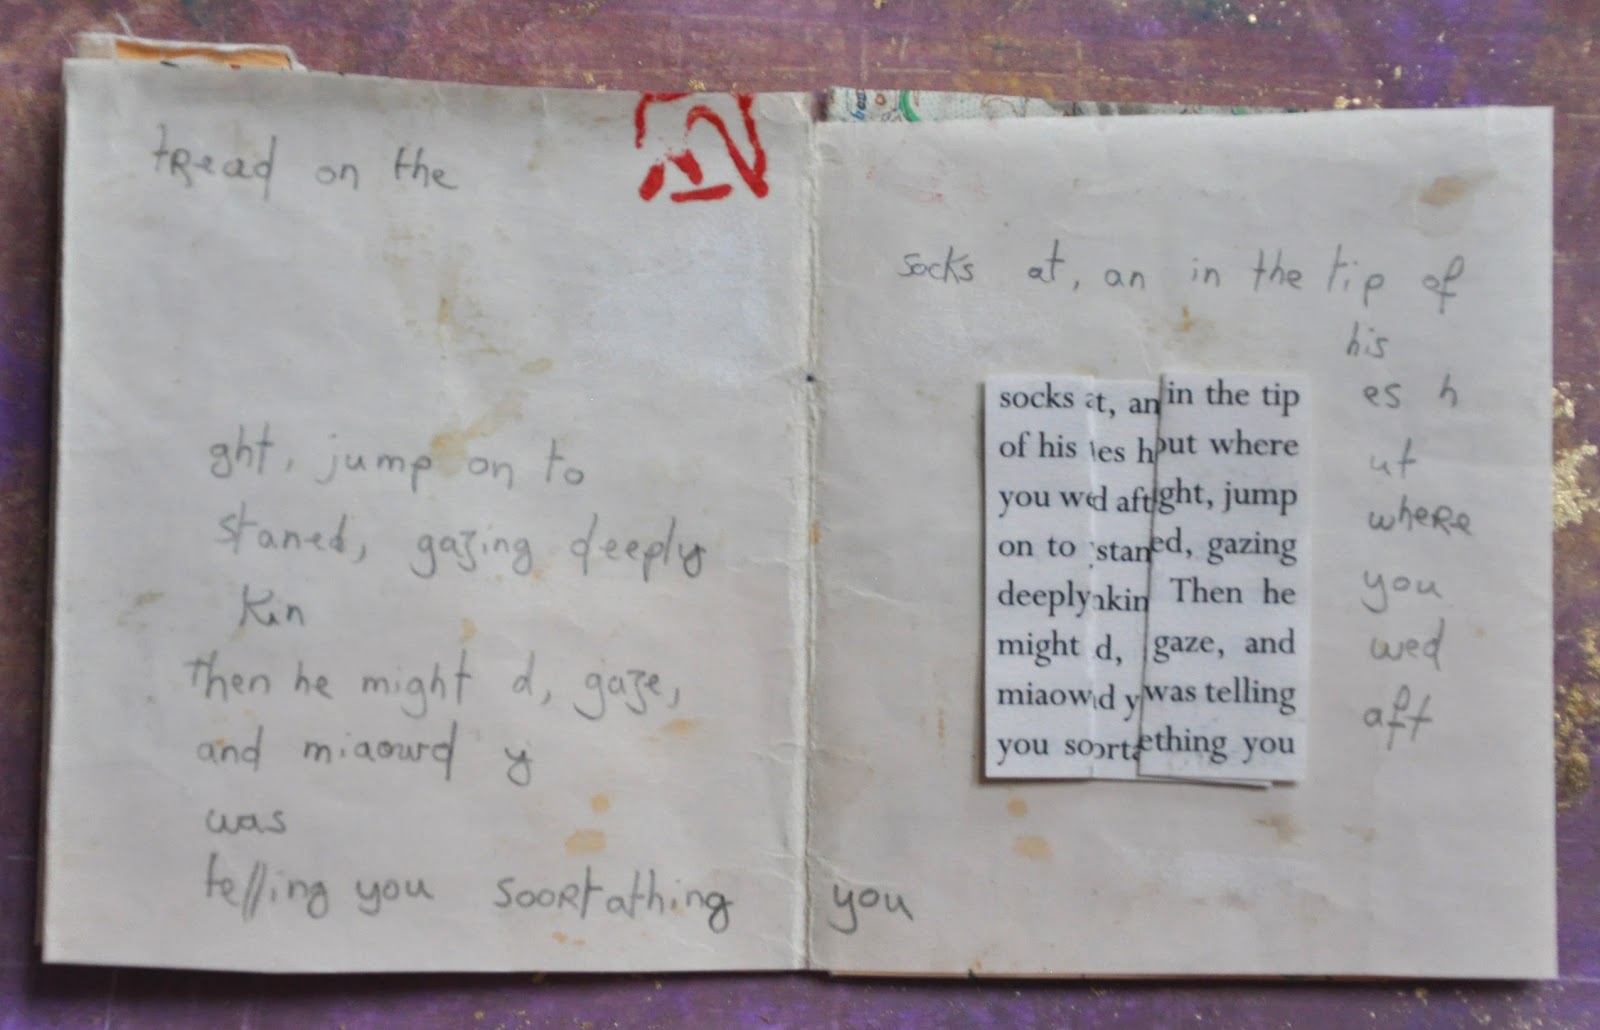 tread on the
ght, jump on to
staned, gazing deeply
kin
then he might d, gaze,
and miaowd y
was
telling you soortathing you
socks at, an in the tip of
his
es h
ut
where
you
wed
aft
socks at, an in the tip
of his les hout where
you wed aftght, jump
on to staned, gazing
deeply kin Then he
might d, gaze, and
miaowd y was telling
you soortething you